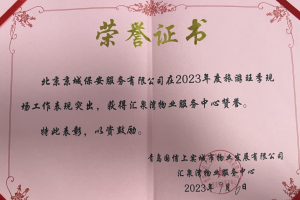 荣誉证书
北京京城保安服务有限公司在2023年度旅游旺季现
场工作表现突出，获得汇泉湾物业服务中心赞誉。
特此表彰，以资鼓励。
青岛国信上实城市物业发展有限公司
汇泉湾物业服务中心
2023年 月 日